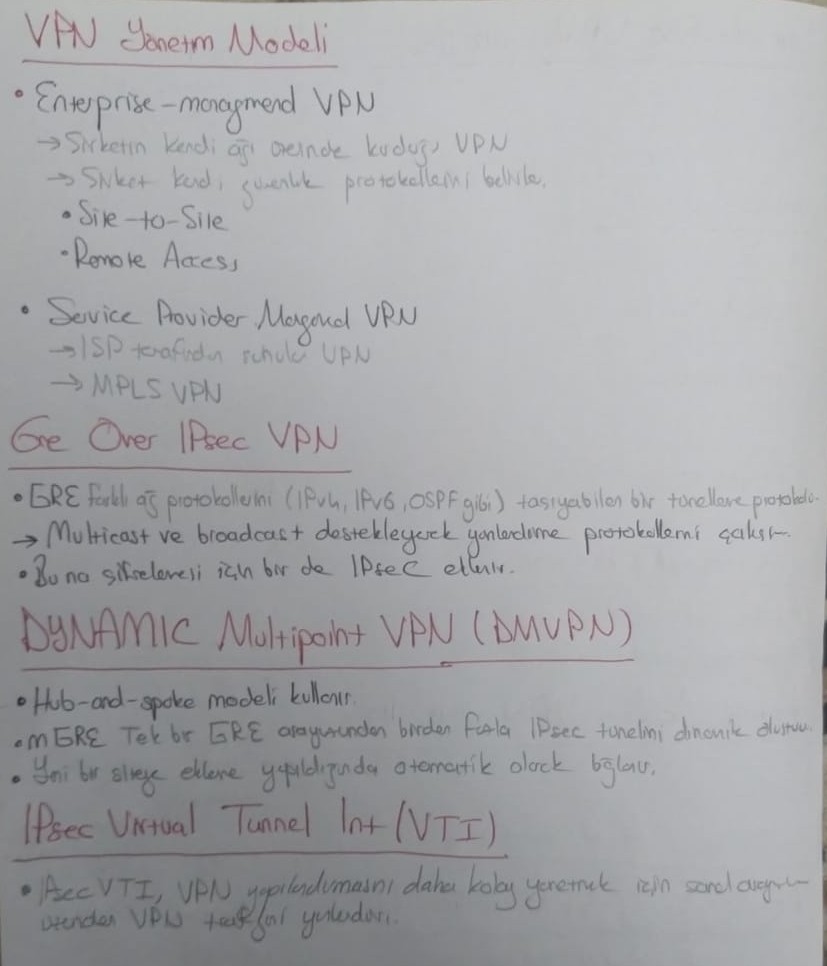 VPN Yönetim Modeli
• Enterprise-managmend VPN
→ Şirketin kendi ağı üzerinde kurduğu VPN
→ Şirket kendi güvenlik protokollerini belirler.
• Site-to-Site
• Remote Access
• Service Provider Managed VPN
→ ISP tarafından sunulan VPN
→ MPLS VPN
Gre Over IPsec VPN
• GRE farklı ağ protokollerini (IPv4, IPv6, OSPF gibi) taşıyabilen bir tünelleme protokolü.
→ Multicast ve broadcast destekleyerek yönlendirme protokollerini çalışır.
• Buna şifrelemesi için bir de IPsec eklenir.
DYNAMIC Multipoint VPN (DMVPN)
• Hub-and-spoke modeli kullanır.
• mGRE Tek bir GRE arayüzünden birden fazla IPsec tünelini dinamik oluşturur.
• Yeni bir ekleme yapıldığında otomatik olarak bağlar.
IPsec Virtual Tunnel Int (VTI)
• IPsec VTI, VPN yapılandırmasını daha kolay yönetmek için sanal arayüz
üzerinden VPN trafiğini yönlendirir.